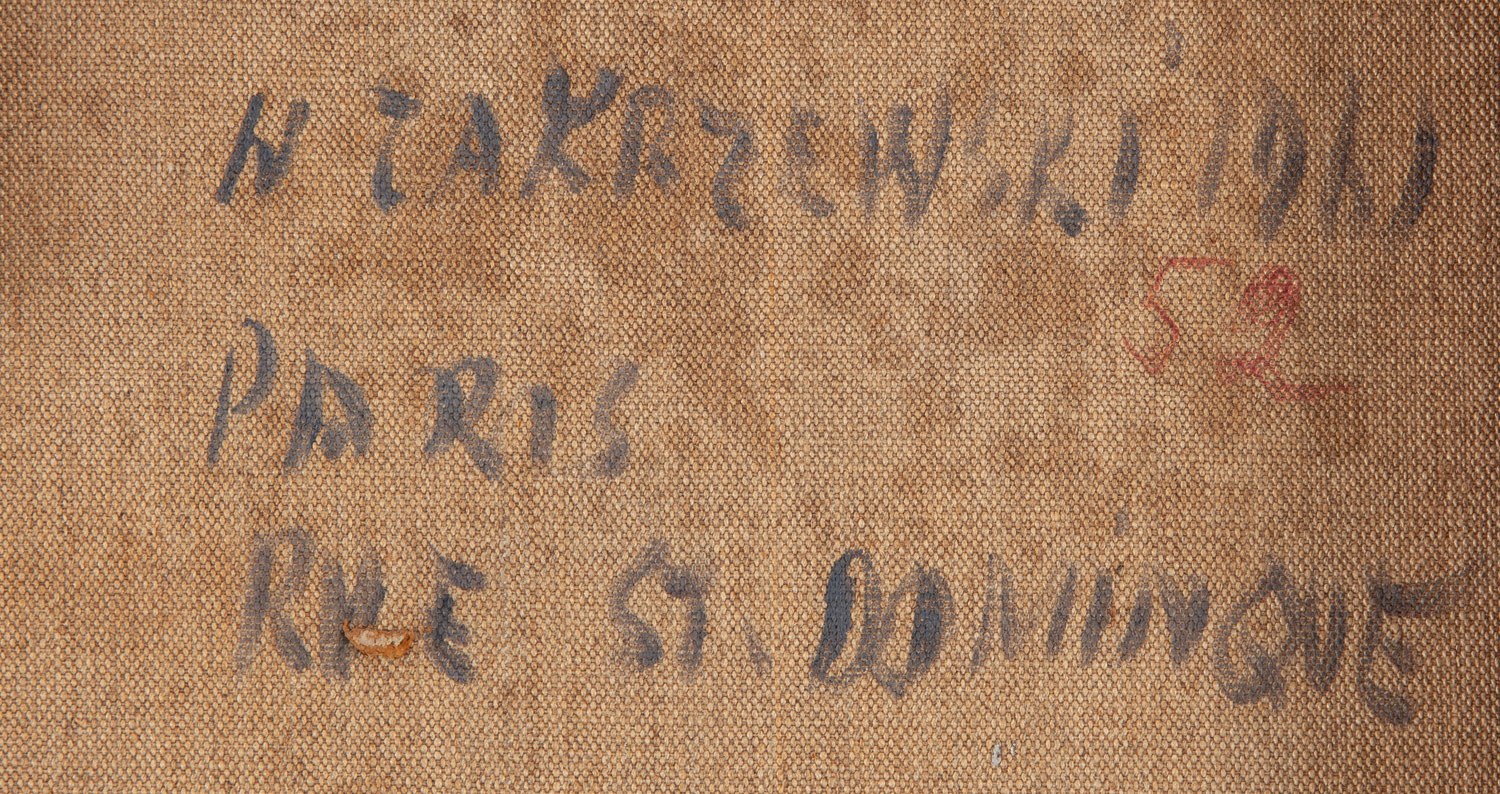 W ZAKRZEWSKI 1961
52
PARIS
RUE ST. DOMINQUE